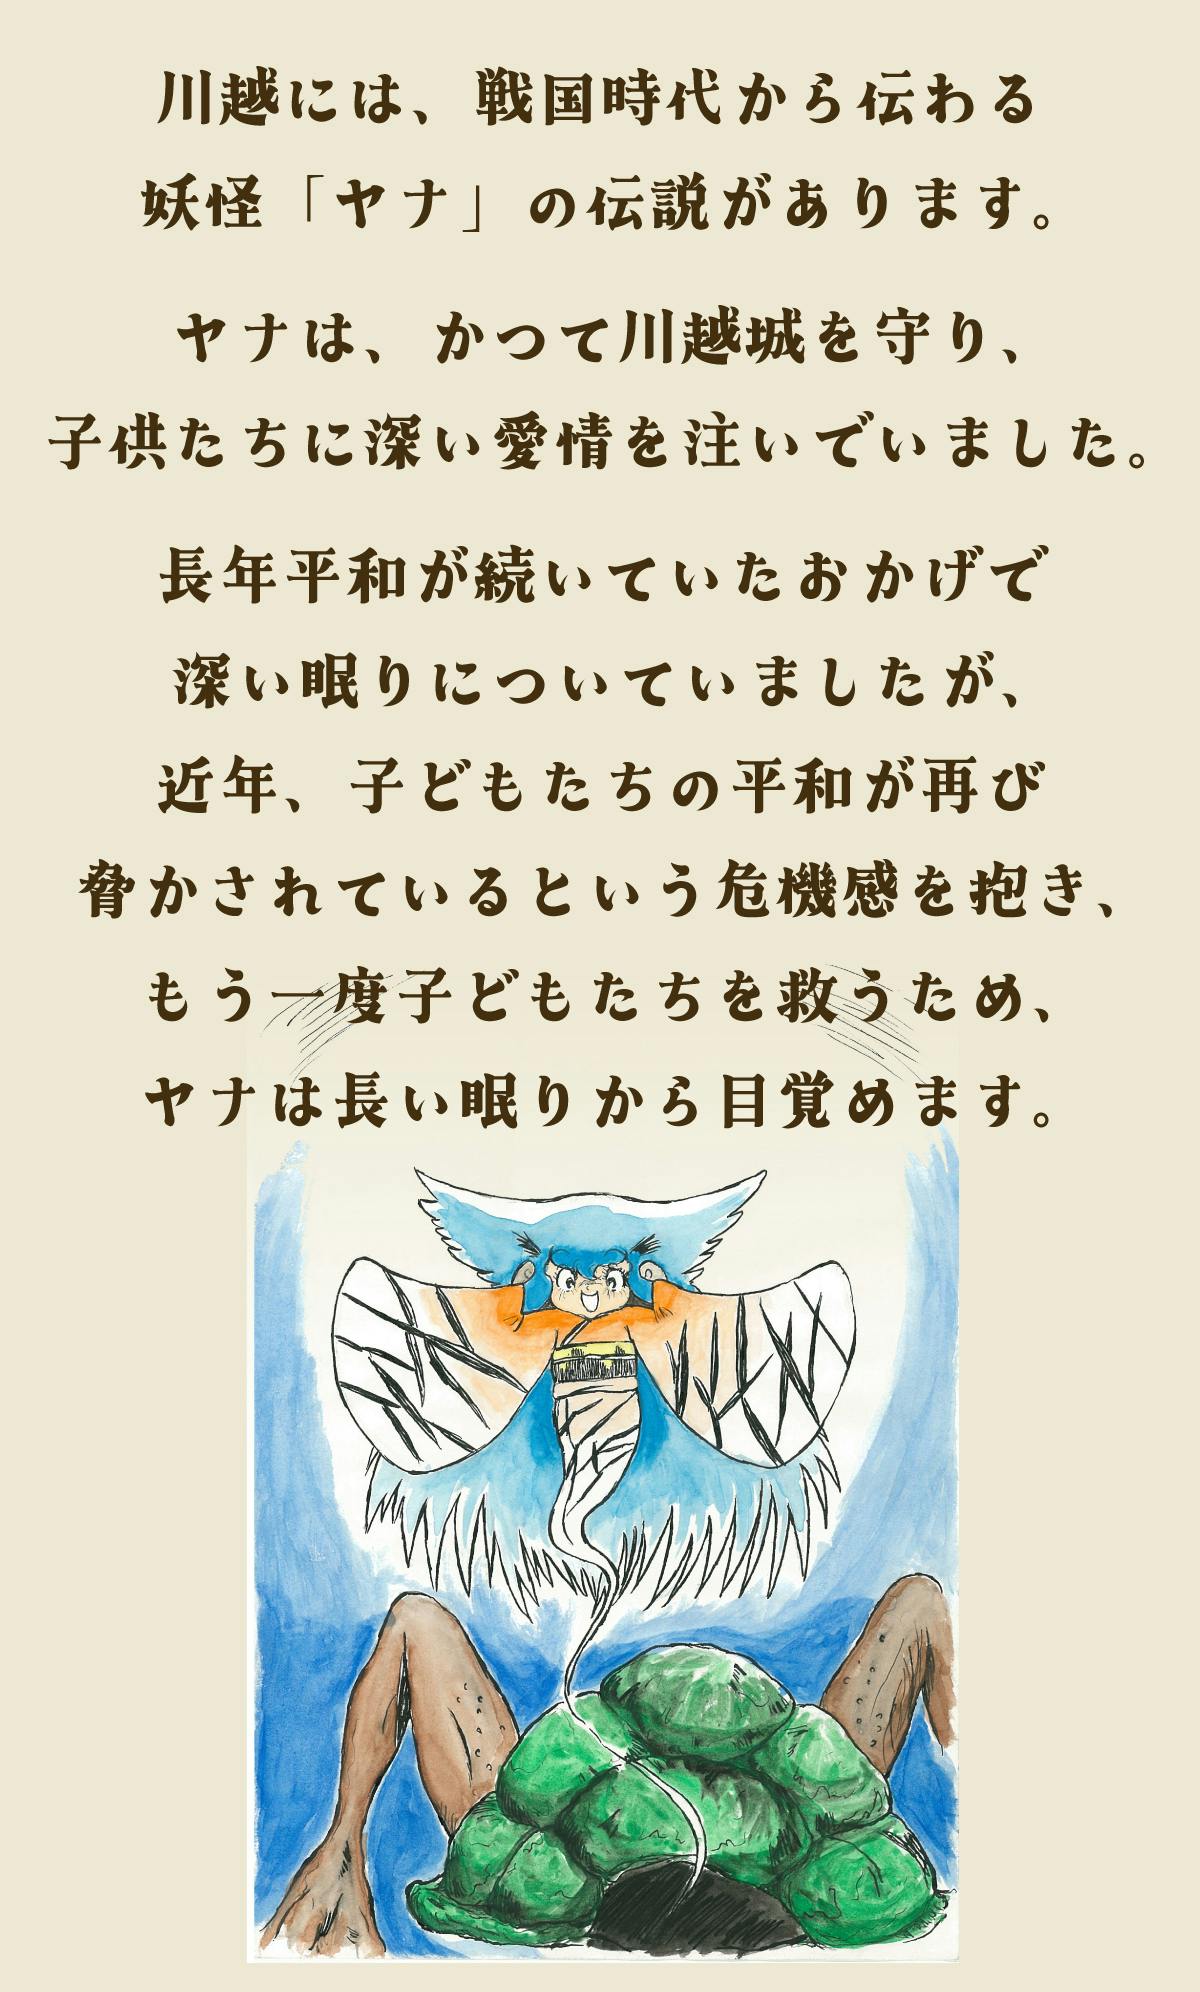 川越には、戦国時代から伝わる
妖怪「ヤナ」の伝説があります。
ヤナは、かつて川越城を守り、
子供たちに深い愛情を注いでいました。
長年平和が続いていたおかげで
深い眠りについていましたが、
近年、子どもたちの平和が再び
脅かされているという危機感を抱き、
もう一度子どもたちを救うため、
ヤナは長い眠りから目覚めます。